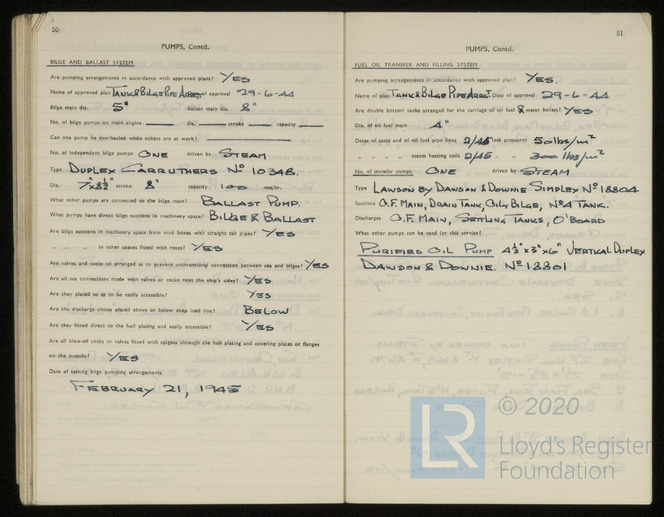 50
PUMPS, Contd.
BILGE AND BALLAST SYSTEM.
Are pumping arrangements in accordance with approved plans? YES
Name of approved plan TANK & BILGE PIPE ARRGT. Date of approval 29-6-44
Bilge main dia. 5" Ballast main dia. 8"
No. of bilge pumps on main engine dia. stroke capacity
Can one pump be overhauled while others are at work?
No. of independent bilge pumps ONE driven by STEAM
Type DUPLEX CARRUTHERS No 10348.
Dia. 7"x8½" stroke 8" capacity 100 tons/hr.
What other pumps are connected to the bilge main? BALLAST PUMP.
What pumps have direct bilge suctions in machinery space? BILGE & BALLAST
Are bilge suctions in machinery space from mud boxes with straight tail pipes? YES
" " " in other spaces fitted with roses? YES
Are valves and cocks so arranged as to prevent unintentional connection between sea and bilges? YES
Are all sea connections made with valves or cocks next the ship's sides? YES
Are they placed so as to be easily accessible? YES
Are the discharge chests placed above or below deep load line? BELOW
Are they fitted direct to the hull plating and easily accessible? YES
Are all blow-off cocks or valves fitted with spigots through the hull plating and covering plates or flanges
on the outside? YES
Date of testing bilge pumping arrangements
FEBRUARY 21, 1945
51
PUMPS, Contd.
FUEL OIL TRANSFER AND FILLING SYSTEM.
Are pumping arrangements in accordance with approved plan? YES.
Name of plan TANK & BILGE PIPE ARRGT Date of approval 29-6-44
Are double bottom tanks arranged for the carriage of oil fuel & water ballast? YES
Dia. of oil fuel main 4"
Dates of tests and of oil fuel pipe lines 2/45 test pressures 50 lbs/in²
" " " " steam heating coils 2/45 " 300 lbs/in²
No. of transfer pumps ONE driven by STEAM
Type LAWSON BY DAWSON & DOWNIE SIMPLEX No 18804
Suctions O.F. MAIN, DRAIN TANK, OILY BILGE, No4 TANK.
Discharges O.F. MAIN, SETTLING TANKS, O'BOARD
What other pumps can be used for this service?
PURIFIED OIL PUMP 4½"x3"x6" VERTICAL DUPLEX
DAWSON & DOWNIE. No 18801
LR
© 2020
Lloyd's Register
Foundation